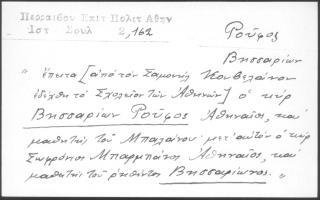 Περραιβου Επιτ Πολιτ Αθην
Ιστ Σουλ 2, 162
Ροῦφος
Βησσαρίων
"ἔπειτα [ἀπὸ τὸν Σαμουὴλ Κουβελάνον
ἐδέχθη τὸ Σχολεῖον τῶν Ἀθηνῶν] ὁ κὺρ
Βησσαρίων Ροῦφος Ἀθηναῖος, καὶ
μαθητὴς τοῦ Μπαλάνου· μετ' αὐτὸν ὁ κὺρ
Σωφρόνιος Μπαρμπάνος Ἀθηναῖος, καὶ
μαθητὴς τοῦ ῥηθέντος Βησσαρίωνος."